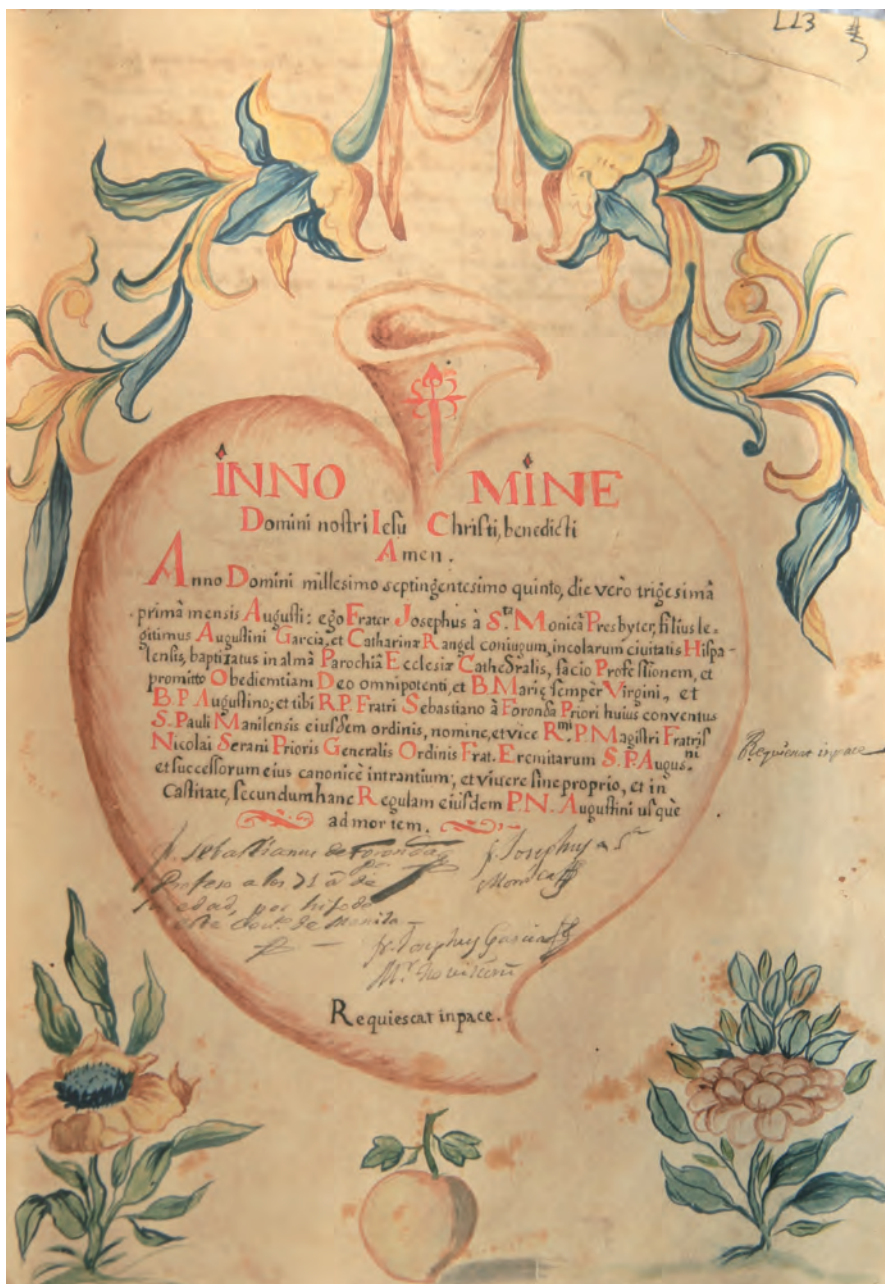 113
INNO MINE
Domini noſtri Ieſu Chriſti, benedicti
Amen.
Anno Domini millesimo septingentesimo quinto, die verò trigesimâ
primâ mensis Auguſti: ego Frater Josephus à S.ta Monicâ Presbyter, filius le-
gitimus Auguſtini Garcia, et Catharinæ Rangel coniugum, incolarum ciuitatis Hiſpa-
lenſis, baptizatus in almâ Parochiâ Ecclesiæ Cathedralis, facio Profeſſionem, et
promitto Obedientiam Deo omnipotenti, et B. Marię ſempèr Virgini, et
B. P. Auguſtino; et tibi R.P. Fratri Sebastiano à Foronda Priori huius conventus
S. Pauli Manilensis eiuſdem ordinis, nomine, et vice R.mi P. Magiſtri Fratriſ
Nicolai Serani Prioris Generalis Ordinis Frat. Eremitarum S. P. Auguſ.ni
et ſucceſſorum eius canonicè intrantium; et vivere ſine proprio, et in
Caſtitate, ſecundum hanc Regulam eiuſdem P. N. Auguſtini uſquè
ad mortem.
f. Sebastianus de Foronda
Prior
f. Josephus a S.ta
Monica
Profeso a los 21 a.s de
su edad, por hijo de
este Conv.to de Manila
fr. Josephus Garcia
M.r Novitiorũ
Requiescat in pace
Requiescat in pace.